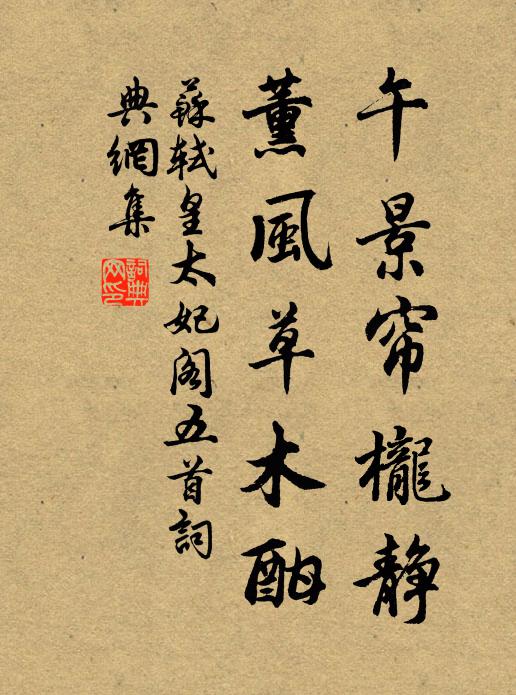 午景帘櫳静
薰風草木酣
蘇軾皇太妃阁五首詞
典網集
詞典网印